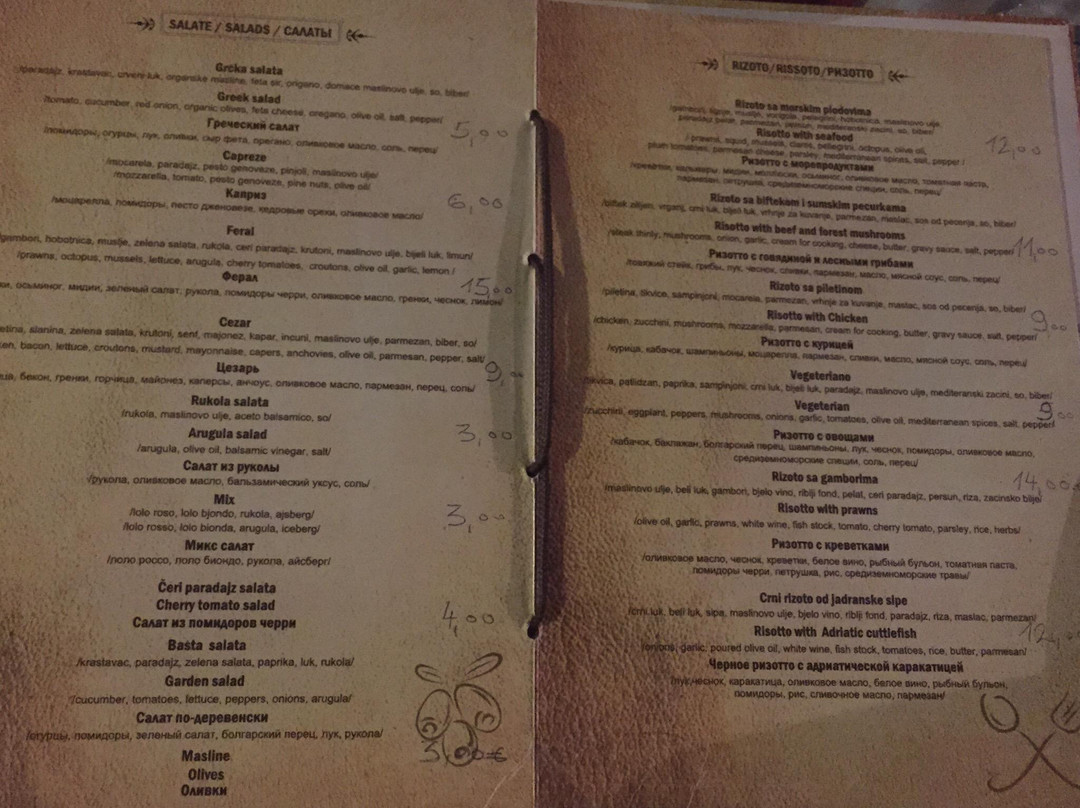 SALATE / SALADS / САЛАТЫ
Grčka salata
/paradajz, krastavac, crveni luk, organske masline, feta sir, origano, domace maslinovo ulje, so, biber/
Greek salad
/tomato, cucumber, red onion, organic olives, feta cheese, oregano, olive oil, salt, pepper/
5,00
Греческий салат
/помидоры, огурцы, лук, оливки, сыр фета, орегано, оливковое масло, соль, перец/
Capreze
/mocarela, paradajz, pesto genoveze, pinjoli, maslinovo ulje/
/mozzarella, tomato, pesto genoveze, pine nuts, olive oil/
Каприз
6,00
/моцарелла, помидоры, песто дженовезе, кедровые орехи, оливковое масло/
Feral
/gambori, hobotnica, muslje, zelena salata, rukola, ceri paradajz, krutoni, maslinovo ulje, bijeli luk, limun/
/prawns, octopus, mussels, lettuce, arugula, cherry tomatoes, croutons, olive oil, garlic, lemon /
Ферал
15,00
осьминог, мидии, зеленый салат, рукола, помидоры черри, оливковое масло, гренки, чеснок, лимон/
Cezar
slanina, zelena salata, krutoni, senf, majonez, kapar, incuni, maslinovo ulje, parmezan, biber, so/
bacon, lettuce, croutons, mustard, mayonnaise, capers, anchovies, olive oil, parmesan, pepper, salt/
Цезарь
9,
бекон, гренки, горчица, майонез, каперсы, анчоус, оливковое масло, пармезан, перец, соль/
Rukola salata
/rukola, maslinovo ulje, aceto balsamico, so/
Arugula salad
3,00
/arugula, olive oil, balsamic vinegar, salt/
Салат из руколы
/рукола, оливковое масло, бальзамический уксус, соль/
Mix
/lolo roso, lolo bjondo, rukola, ajsberg/
3,00
/lolo rosso, lolo bionda, arugula, iceberg/
Микс салат
/лоло россо, лоло биондо, рукола, айсберг/
Čeri paradajz salata
Cherry tomato salad
4,00
Салат из помидоров черри
Bašta salata
/krastavac, paradajz, zelena salata, paprika, luk, rukola/
Garden salad
/cucumber, tomatoes, lettuce, peppers, onions, arugula/
Салат по-деревенски
/огурцы, помидоры, зеленый салат, болгарский перец, лук, рукола/
Masline
3,00€
Olives
Оливки
RIZOTO/RISSOTO/РИЗОТТО
Rizoto sa morskim plodovima
Risotto with seafood
12,00
/ prawns, squid, mussels, clams, pellegrini, octopus, olive oil,
plum tomatoes, parmesan cheese, parsley, mediterranean spices, salt, pepper /
Ризотто с морепродуктами
/креветки, кальмары, мидии, моллюски, осьминог, оливковое масло, томатная паста,
пармезан, петрушка, средиземноморские специи, соль, перец/
Rizoto sa biftekom i sumskim pecurkama
/biftek zilijen, vrganj, crni luk, bijeli luk, vrhnje za kuvanje, parmezan, maslac, sos od pecenja, so, biber/
Risotto with beef and forest mushrooms
/steak thinly, mushrooms, onion, garlic, cream for cooking, cheese, butter, gravy sauce, salt, pepper/
11,00
Ризотто с говядиной и лесными грибами
/говяжий стейк, грибы, лук, чеснок, сливки, пармезан, масло, мясной соус, соль, перец/
Rizoto sa piletinom
/piletina, tikvice, sampinjoni, mocarela, parmezan, vrhnje za kuvanje, maslac, sos od pecenja, so, biber/
Risotto with Chicken
9,00
/chicken, zucchini, mushrooms, mozzarella, parmesan, cream for cooking, butter, gravy sauce, salt, pepper/
Ризотто с курицей
/курица, кабачок, шампиньоны, моцарелла, пармезан, сливки, масло, мясной соус, соль, перец/
Vegeteriano
/tikvica, patlidzan, paprika, sampinjoni, crni luk, bijeli luk, paradajz, maslinovo ulje, mediteranski zacini, so, biber/
Vegeterian
9,00
/zucchini, eggplant, peppers, mushrooms, onions, garlic, tomatoes, olive oil, mediterranean spices, salt, pepper/
Ризотто с овощами
/кабачок, баклажан, болгарский перец, шампиньоны, лук, чеснок, помидоры, оливковое масло,
средиземноморские специи, соль, перец/
Rizoto sa gamborima
14,00
/maslinovo ulje, beli luk, gambori, bjelo vino, riblji fond, pelat, ceri paradajz, persun, riza, zacinsko bilje/
Risotto with prawns
/olive oil, garlic, prawns, white wine, fish stock, tomato, cherry tomato, parsley, rice, herbs/
Ризотто с креветками
/оливковое масло, чеснок, креветки, белое вино, рыбный бульон, томатная паста,
помидоры черри, петрушка, рис, средиземноморские травы/
Crni rizoto od jadranske sipe
/crni luk, beli luk, sipa, maslinovo ulje, bjelo vino, riblji fond, paradajz, riza, maslac, parmezan/
Risotto with Adriatic cuttlefish
12,00
/onions, garlic, poured olive oil, white wine, fish stock, tomatoes, rice, butter, parmesan/
Черное ризотто с адриатической каракатицей
/лук,чеснок, каракатица, оливковое масло, белое вино, рыбный бульон,
помидоры, рис, сливочное масло, пармезан/